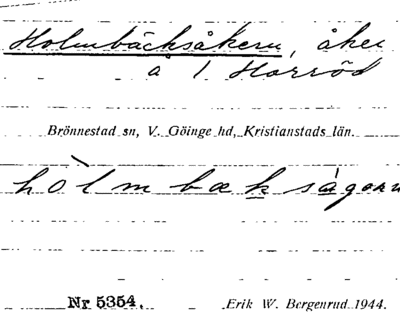 Holmbäcksåkern, åker
å 1 Horröd
Brönnestad sn, V. Göinge hd, Kristianstads län.
hòlmbækságorn
Nr 5354. Erik W. Bergenrud 1944.